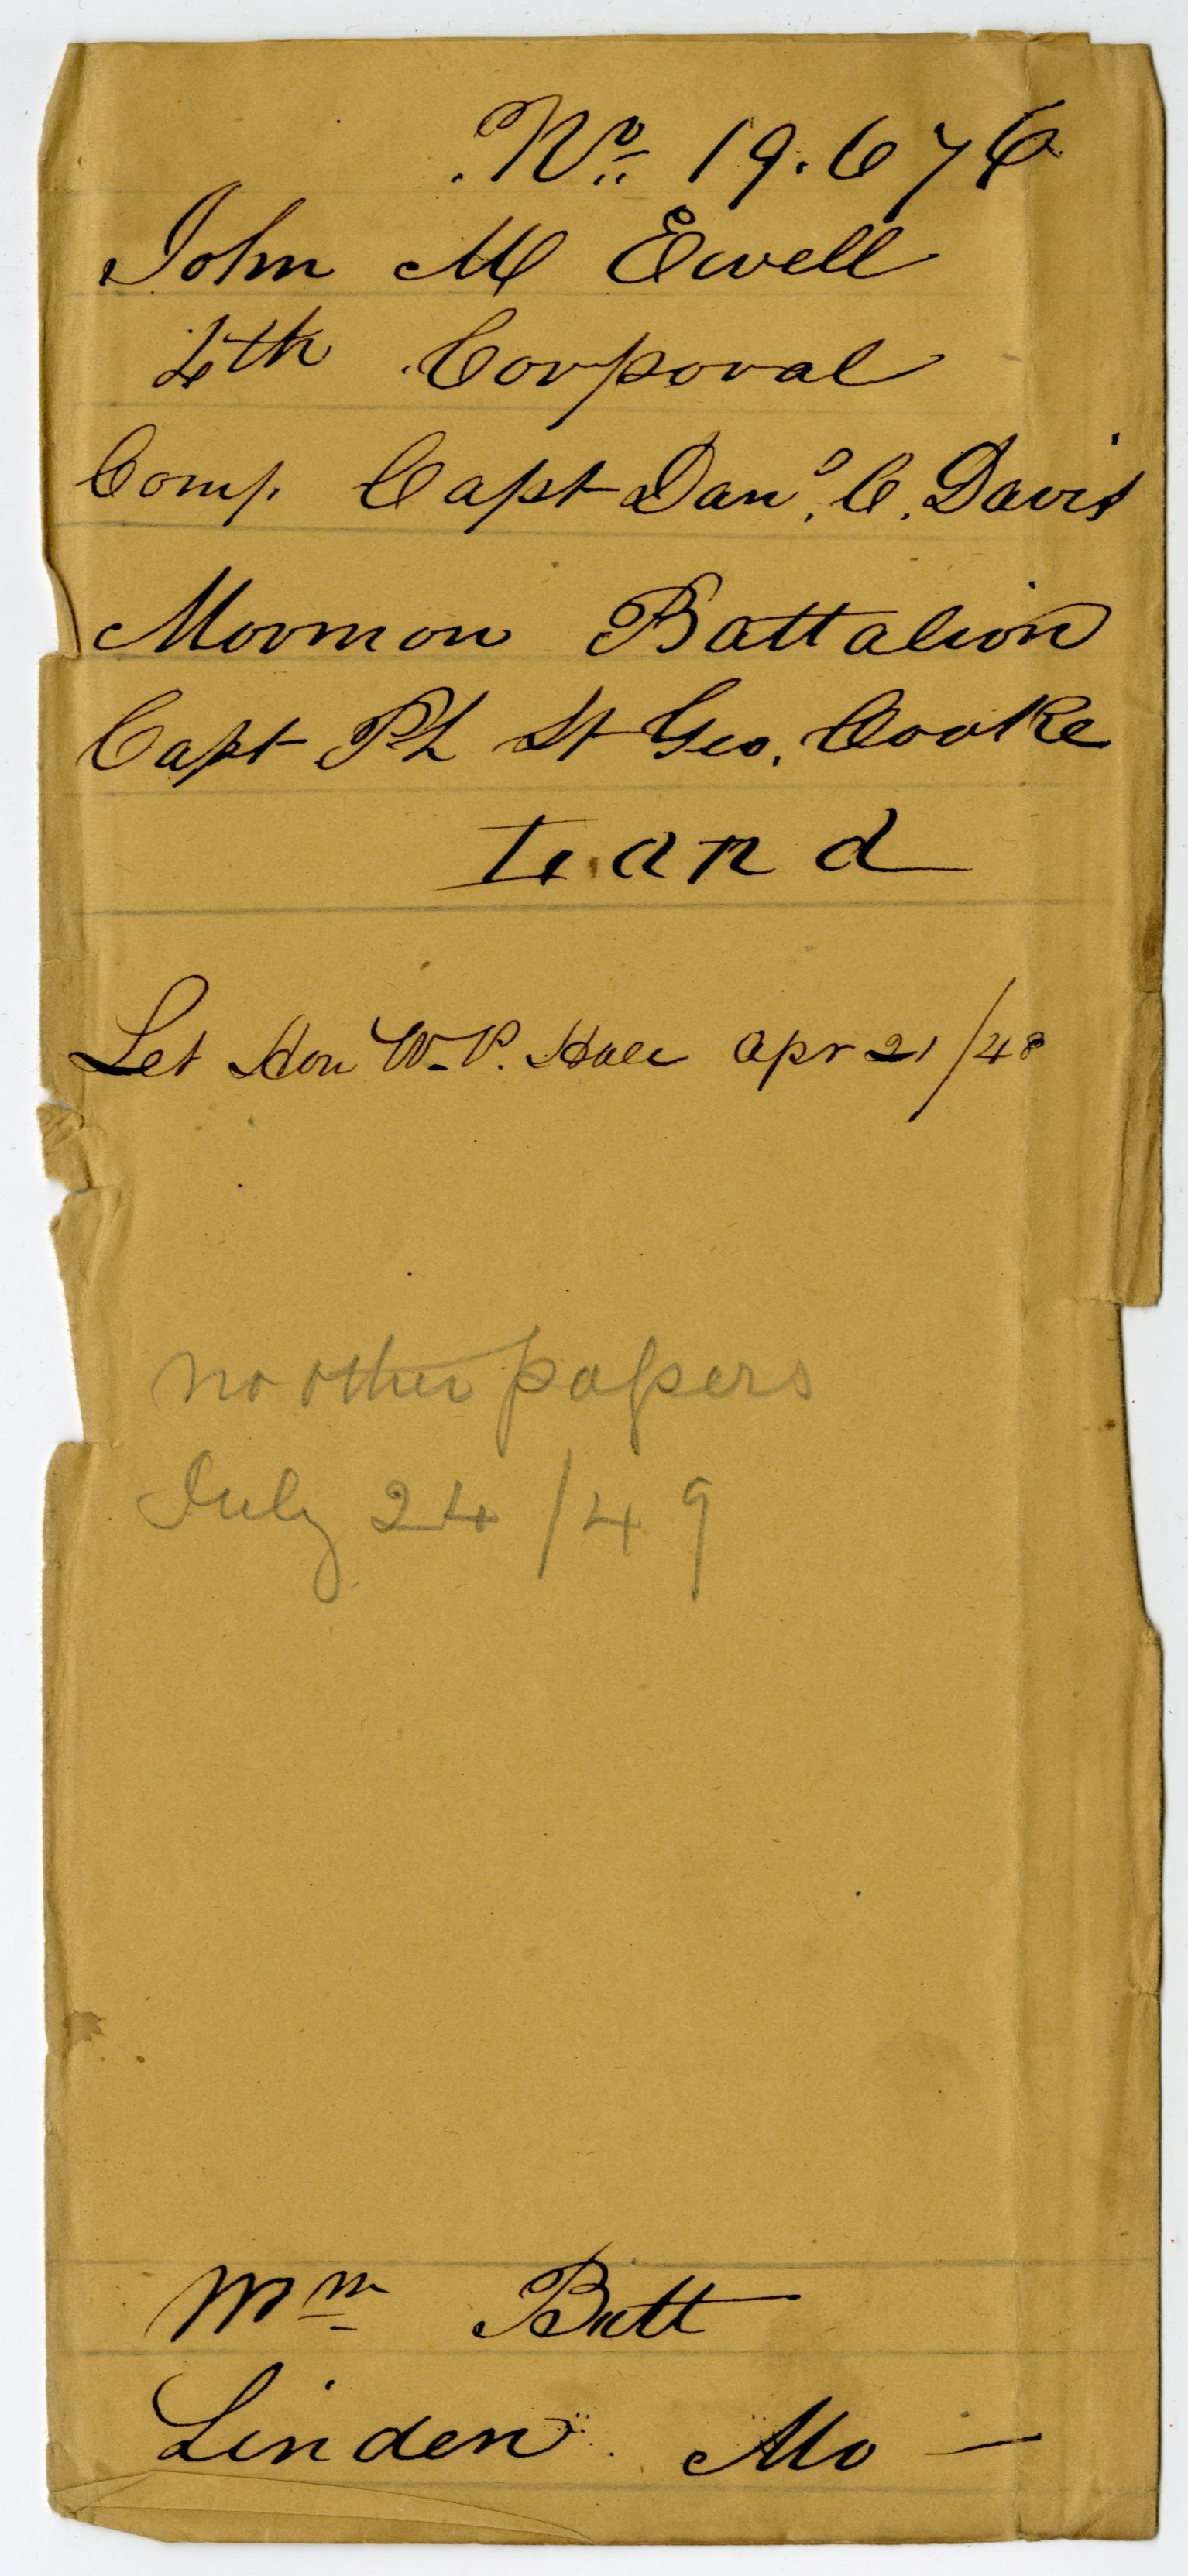 No. 19.676
John M Ewell
4th Corporal
Comp. Capt Danl. C. Davis
Mormon Battalion
Capt Ph St Geo. Cooke
Land
Let Hon W. P. Hall apr 21/48
no other papers
July 24/49
Wm Butt
Linden Mo —